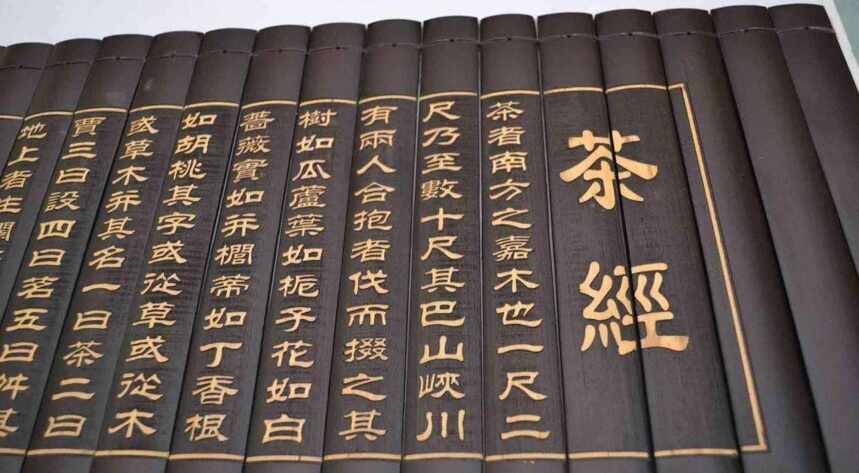 茶經
茶者南方之嘉木也一尺二
尺乃至數十尺其巴山峽川
有兩人合抱者伐而掇之其
樹如瓜蘆葉如梔子花如白
薔薇實如并櫚蒂如丁香根
如胡桃其字或從草或從木
或草木并其名一曰茶二曰
賈三曰設四曰茗五曰舛其
地上者生